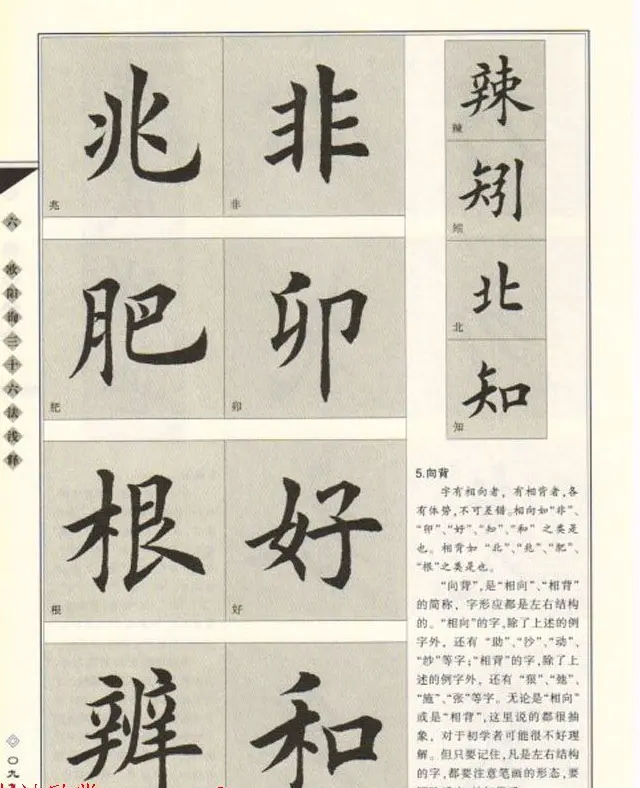 六 欧阳询三十六法浅释
兆 非
兆 非
肥 卯
肥 卯
根 好
根 好
辨 和
辣
辣
矧
矧
北
北
知
知
5.向背
字有相向者，有相背者，各
有体势，不可差错。相向如“非”、
“卯”、“好”、“知”、“和” 之类是
也。相背如 “北”、“兆”、“肥”、
“根”之类是也。
“向背”，是“相向”、“相背”
的简称，字形应都是左右结构
的。“相向”的字，除了上述的例
字外，还有 “助”、“沙”、“动”、
“纱”等字；“相背”的字，除了上
述的例字外，还有 “狠”、“弛”、
“施”、“张”等字。无论是“相向”
或是“相背”，这里说的都很抽
象，对于初学者可能很不好理
解。但只要记住，凡是左右结构
的字，都要注意笔画的形态，要
〇九